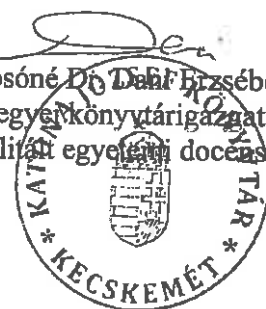 osóné Dr. Dani Erzsébe
egyei könyvtárigazgat
litált egyetemi docens
KATONA JÓZSEF KÖNYVTÁR
* KECSKEMÉT *